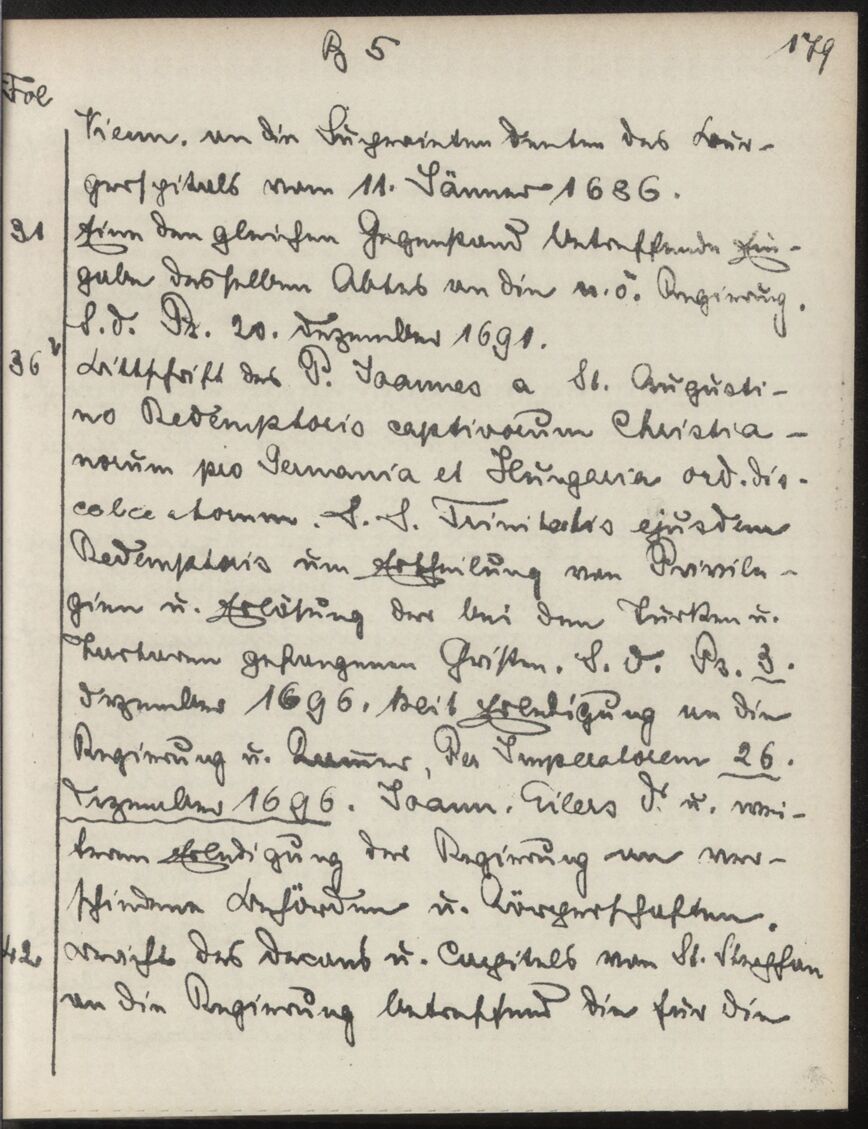 B 5 179
Fol
Vienn. an die Superintendenten des Bur-
gerspitals vom 11. Jänner 1686.
31 Eine den gleichen Gegenstand betreffende Ein-
gabe desselben Abtes an die n. ö. Regierung.
S. d. Ps. 20. Dezember 1691.
36v Bittschrift des P. Joannes a St. Augusti-
no Redemptoris captivorum Christia-
norum pro Germania et Hungaria ord. dis-
calceatorum. S. S. Trinitatis ejusdem
Redemptoris um Ertheilung von Privile-
gien u. Erlösung der bei den Türken u.
Tartaren gefangenen Christen. S. d. Ps. 3.
Dezember 1696. Mit Erledigung an die
Regierung u. Kammer, Per Imperatorem 26.
Dezember 1696. Joann. Eilers Dr. u. wei-
teren Erledigung der Regierung an ver-
schiedene Behörden u. Körperschaften.
42 Bericht des Decans u. Capitels von St. Stephan
an die Regierung betreffend die für die